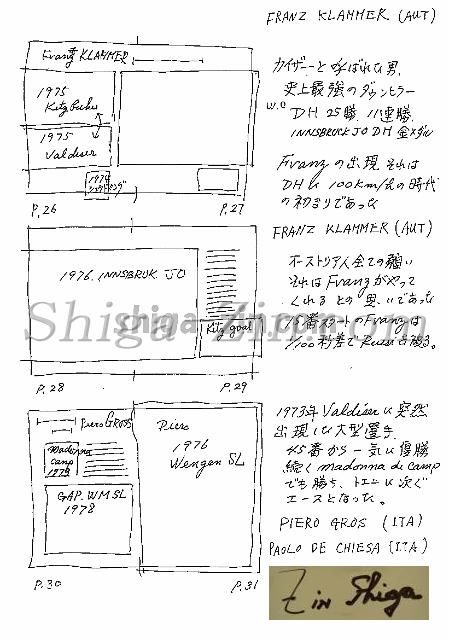 FRANZ KLAMMER (AUT)
Franz KLAMMER
1975
Kitzbuhe
1975
Valdiser
1974
P.26
P.27
カイザーと呼ばれた男、
史上最強のダウンヒラー
W.C DH 25勝 11連勝
INNSBRUCK JO DH 金メダル
Franzの出現 それは
DHに100km/hの時代
の初まりであった
FRANZ KLAMMER (AUT)
1976. INNSBRUK JO
Kitz goal
P.28
P.29
オーストリア人全ての願い
それはFranzがやって
くれる との思いであった
15番スタートのFranzは
1/100秒差でRussiに勝る。
Piero GROS
madonna
camp
1973
GAP. WM SL
1978
Piero
1976
Wengen SL
P.30
P.31
1973年 Valdiserに突然
出現した大型選手
45番から一気に優勝
続く madonna di camp
でも勝ち、トエニに次ぐ
エースとなった。
PIERO GROS (ITA)
PAOLO DE CHIESA (ITA)
Shiga Zin
Z in Shiga